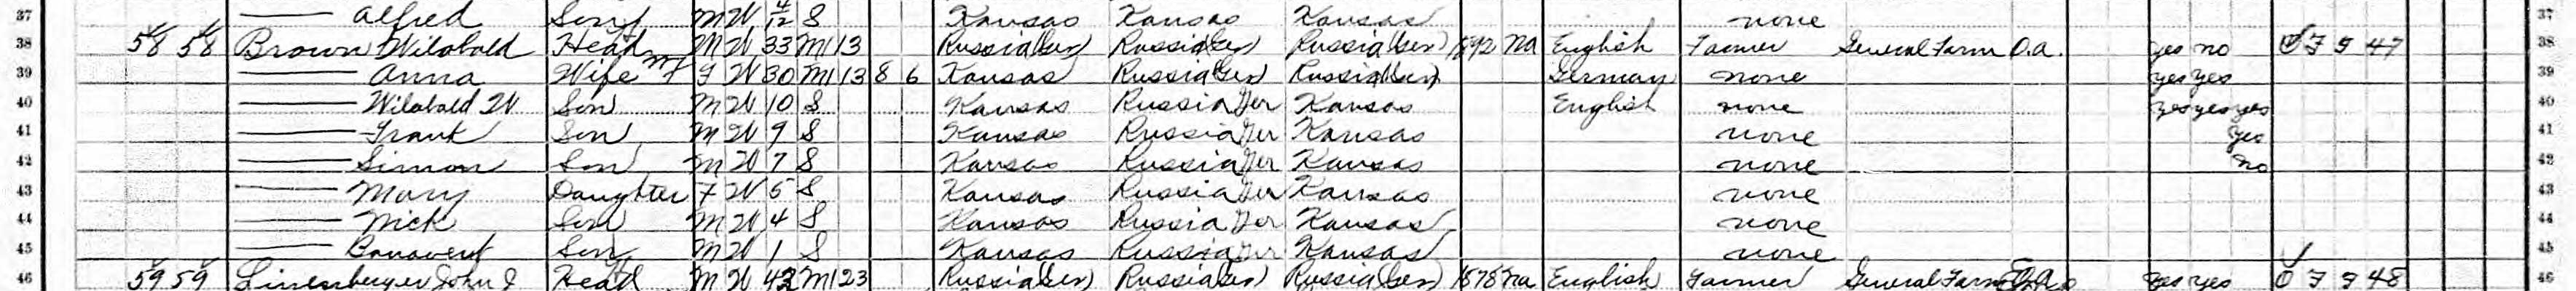 37 — Alfred Son M W 4/12 S Kansas Kansas Kansas none 37
38 58 58 Brown Wilabald Head M W 33 M1 13 Russia (Ger) Russia (Ger) Russia (Ger) 1892 na English Farmer General Farm O.a. yes no O F F 47 38
39 — Anna Wife F W 30 M1 13 8 6 Kansas Russia (Ger) Russia (Ger) German none yes yes 39
40 — Wilabald W Son M W 10 S Kansas Russia Ger Kansas English none yes yes yes 40
41 — Frank Son M W 9 S Kansas Russia Ger Kansas none yes 41
42 — Simon Son M W 7 S Kansas Russia Ger Kansas none no 42
43 — Mary Daughter F W 5 S Kansas Russia Ger Kansas none 43
44 — Nick Son M W 4 S Kansas Russia Ger Kansas none 44
45 — Bonavent Son M W 1 S Kansas Russia Ger Kansas none 45
46 59 59 Linenberger John J Head M W M1 23 Russia (Ger) Russia (Ger) Russia (Ger) 1878 na English Farmer General Farm yes yes O F F 48 46